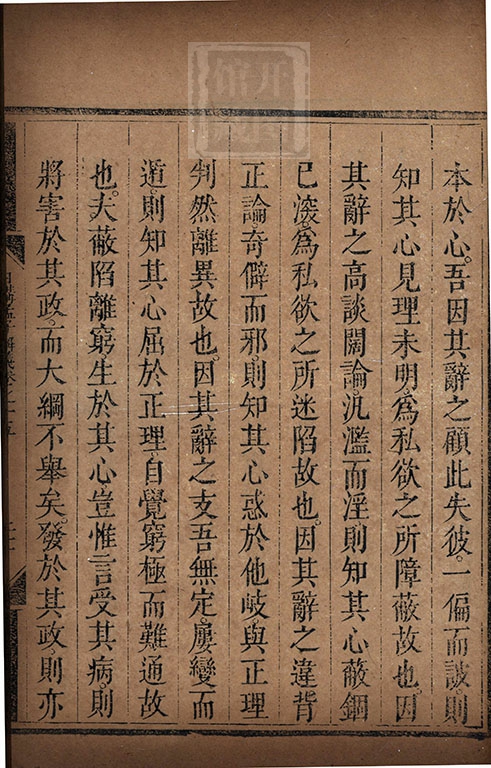 本於心。吾因其辭之顧此失彼。一偏而詖。則
知其心見理未明。爲私欲之所障蔽故也。因
其辭之高談闊論。汎濫而淫。則知其心蔽錮
已深。爲私欲之所迷陷故也。因其辭之違背
正論。奇僻而邪。則知其心惑於他岐。與正理
判然離異故也。因其辭之支吾無定。屢變而
遁。則知其心屈於正理。自覺窮極而難通故
也。夫蔽陷離窮生於其心。豈惟言受其病。則
將害於其政。而大綱不舉矣。發於其政。則亦